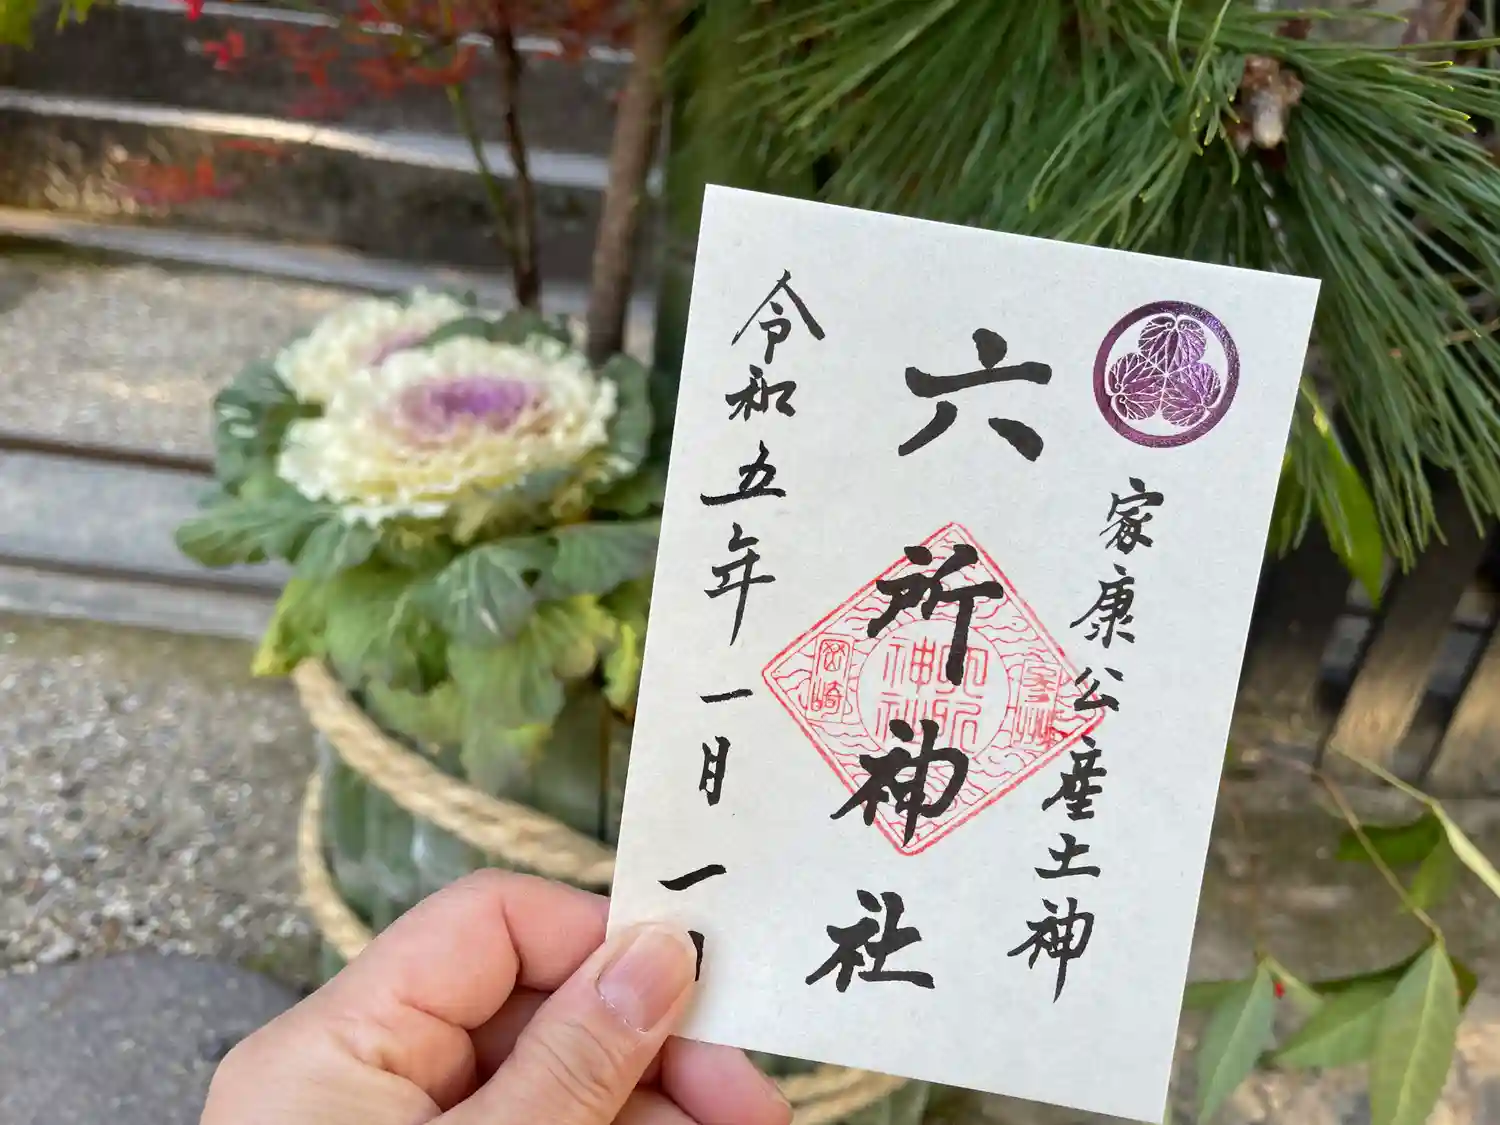 家康公産土神
六所神社
令和五年一月一日
六所
神社
岡崎